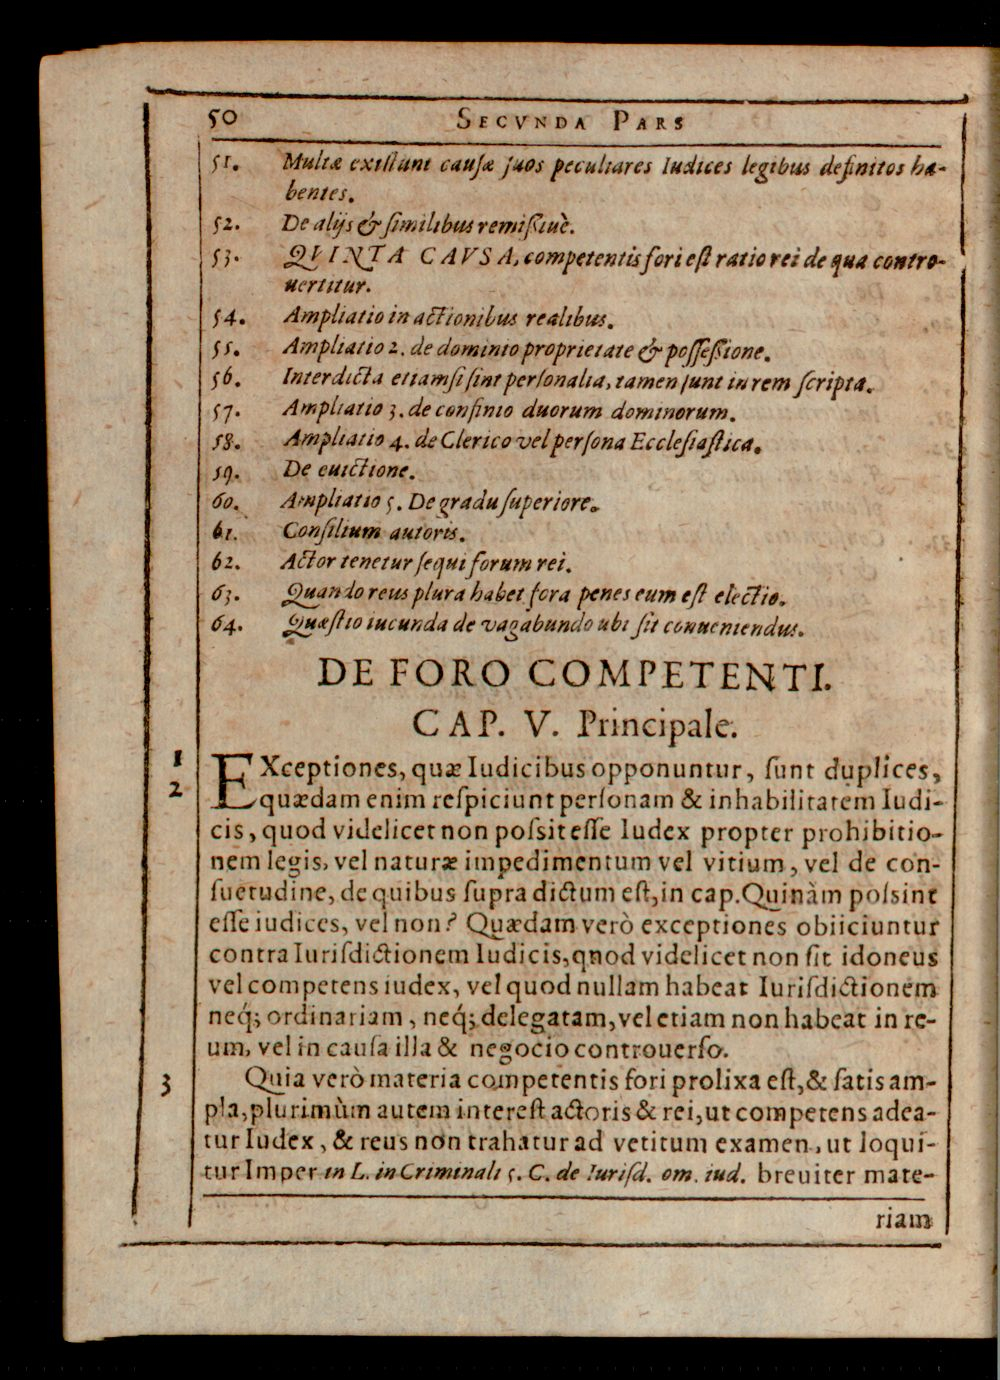 50 SECVNDA PARS
51. Multæ existunt causæ suos peculiares Iudices legibus definitos ha-
bentes.
52. De alijs & similibus remissiuè.
53. QVINTA CAVSA, competentis fori est ratio rei de qua contro-
uertitur.
54. Ampliatio in actionibus realibus.
55. Ampliatio 2. de dominio proprietate & possessione.
56. Interdicta etiamsi sint personalia, tamen sunt in rem scripta.
57. Ampliatio 3. de confinio duorum dominorum.
58. Ampliatio 4. de Clerico vel persona Ecclesiastica.
59. De euictione.
60. Ampliatio 5. De gradu superiore.
61. Consilium autoris.
62. Actor tenetur sequi forum rei.
63. Quando reus plura habet fora penes eum est electio.
64. Quæstio iucunda de vagabundo ubi sit conueniendus.
DE FORO COMPETENTI.
CAP. V. Principale.
1 EXceptiones, quæ Iudicibus opponuntur, sunt duplices,
2 quædam enim respiciunt personam & inhabilitatem Iudi-
cis, quod videlicet non possit esse Iudex propter prohibitio-
nem legis, vel naturæ impedimentum vel vitium, vel de con-
suetudine, de quibus supra dictum est, in cap. Quinàm possint
esse iudices, vel non? Quædam verò exceptiones obiiciuntur
contra Iurisdictionem Iudicis, quod videlicet non sit idoneus
vel competens iudex, vel quod nullam habeat Iurisdictionem
neq́; ordinariam, neq́; delegatam, vel etiam non habeat in re-
um, vel in causa illa & negocio controuerso.
3 Quia verò materia competentis fori prolixa est, & satis am-
pla, plurimùm autem interest actoris & rei, ut competens adea-
tur Iudex, & reus non trahatur ad vetitum examen, ut loqui-
tur Imper in L. in Criminali 5. C. de Iurisd. om. iud. breuiter mate-
riam